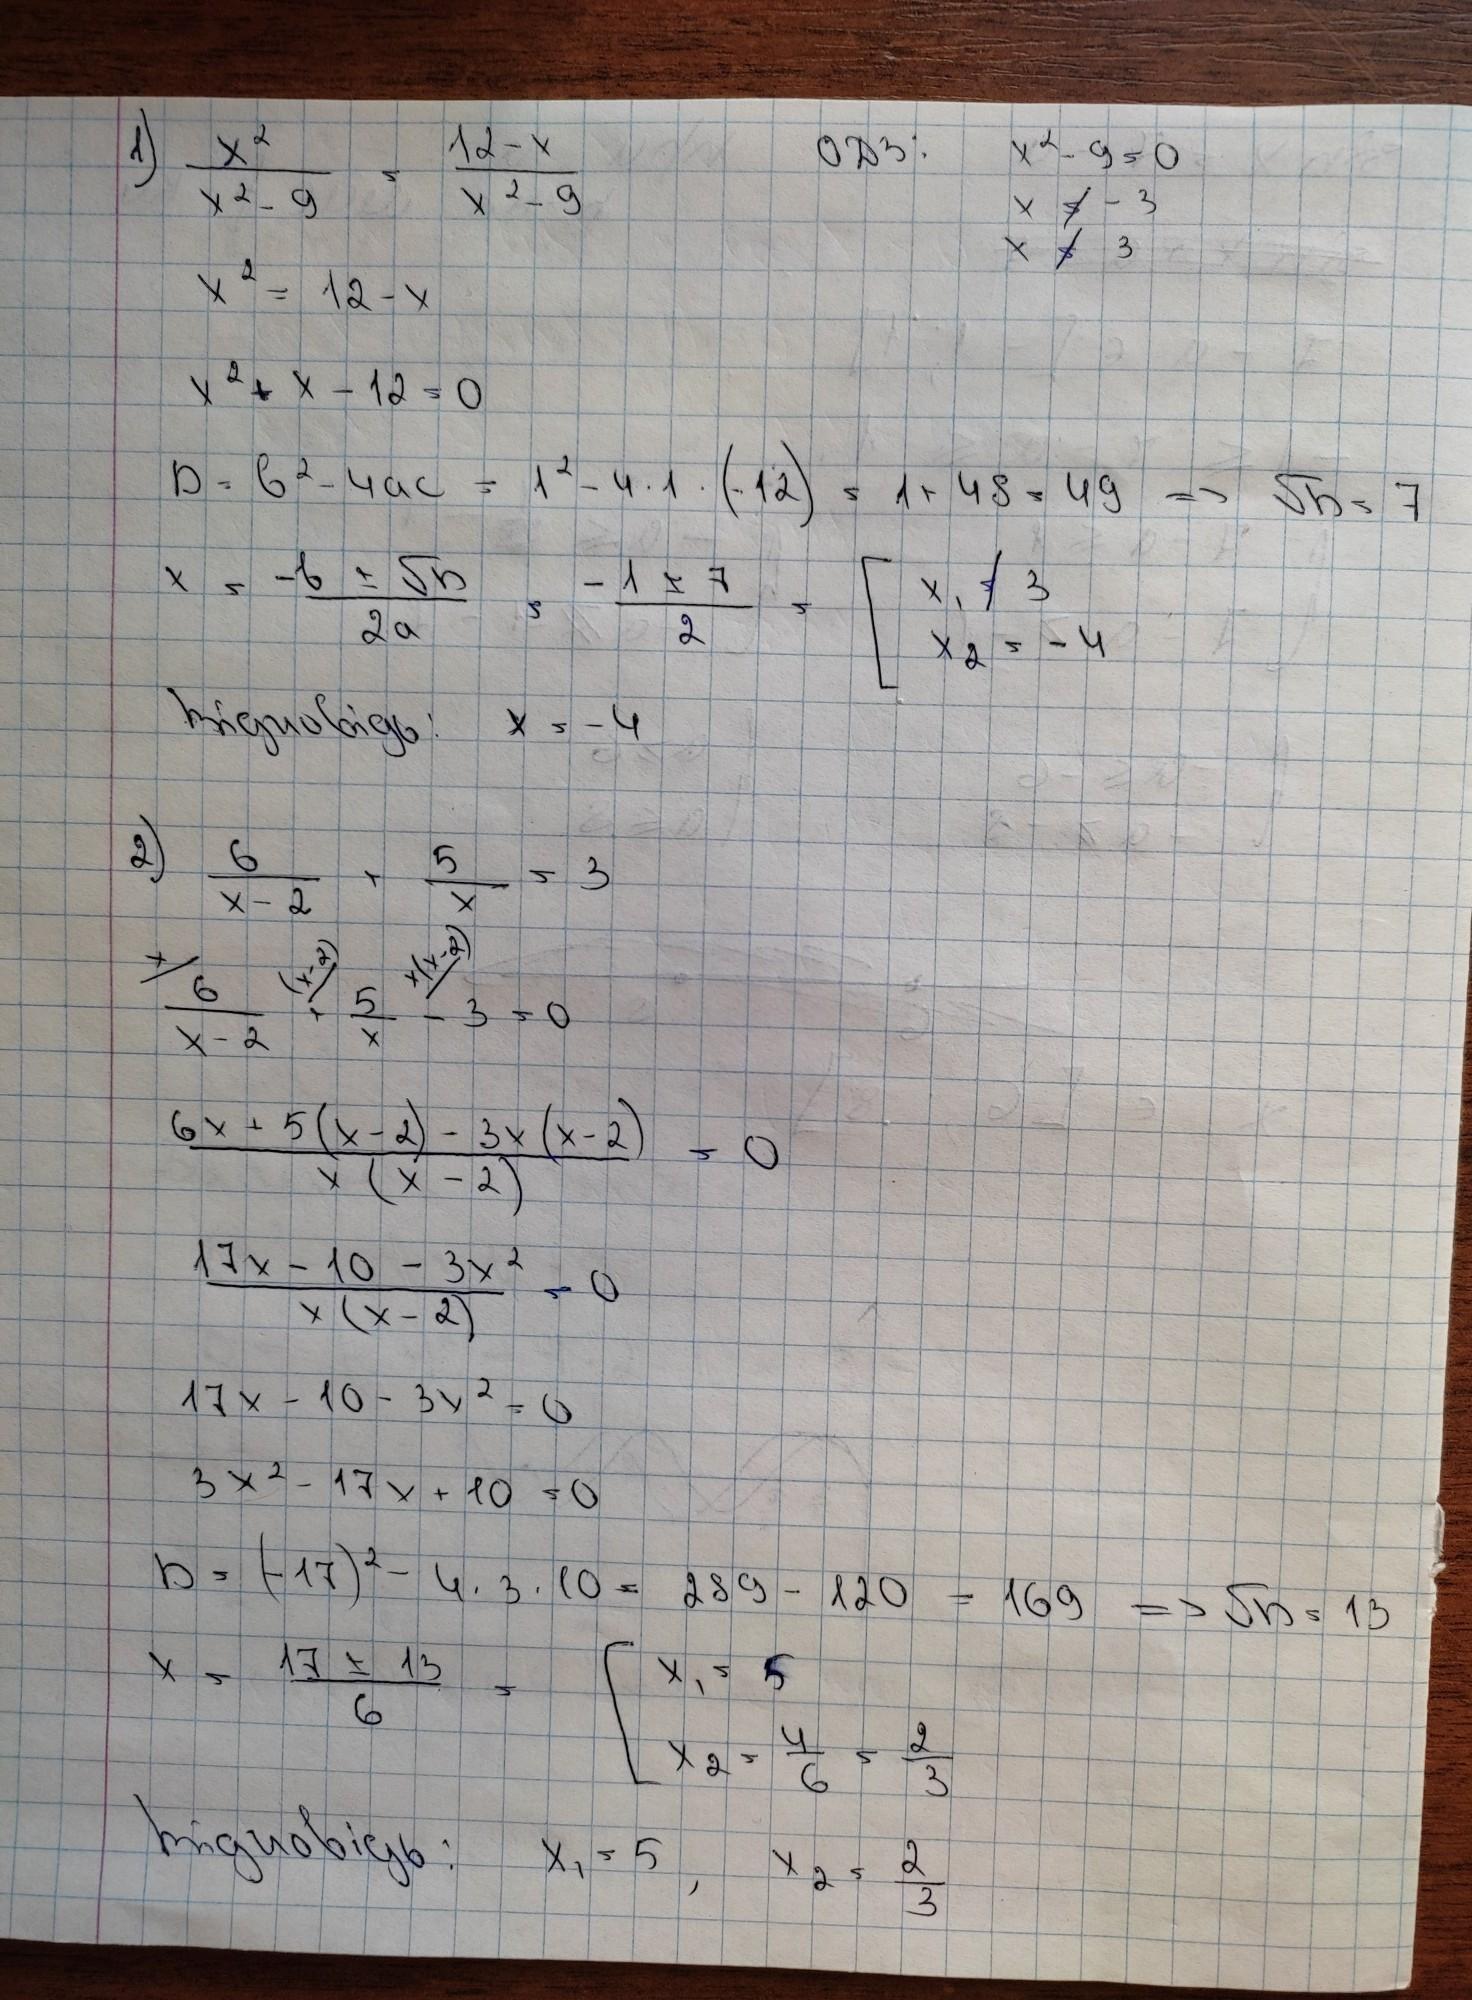 1) x²/(x²-9) = (12-x)/(x²-9)   ОДЗ: x²-9=0
x ≠ -3
x ≠ 3
x² = 12-x
x² + x - 12 = 0
D = b² - 4ac = 1² - 4·1·(-12) = 1 + 48 = 49 => √D = 7
x = (-b ± √D)/2a = (-1 ± 7)/2 = [ x₁ ≠ 3
x₂ = -4
Відповідь: x = -4
2) 6/(x-2) + 5/x = 3
x/ 6/(x-2) + (x-2)/ 5/x - x(x-2)/ 3 = 0
(6x + 5(x-2) - 3x(x-2))/(x(x-2)) = 0
(17x - 10 - 3x²)/(x(x-2)) = 0
17x - 10 - 3x² = 0
3x² - 17x + 10 = 0
D = (-17)² - 4·3·10 = 289 - 120 = 169 => √D = 13
x = (17 ± 13)/6 = [ x₁ = 5
x₂ = 4/6 = 2/3
Відповідь: x₁ = 5, x₂ = 2/3